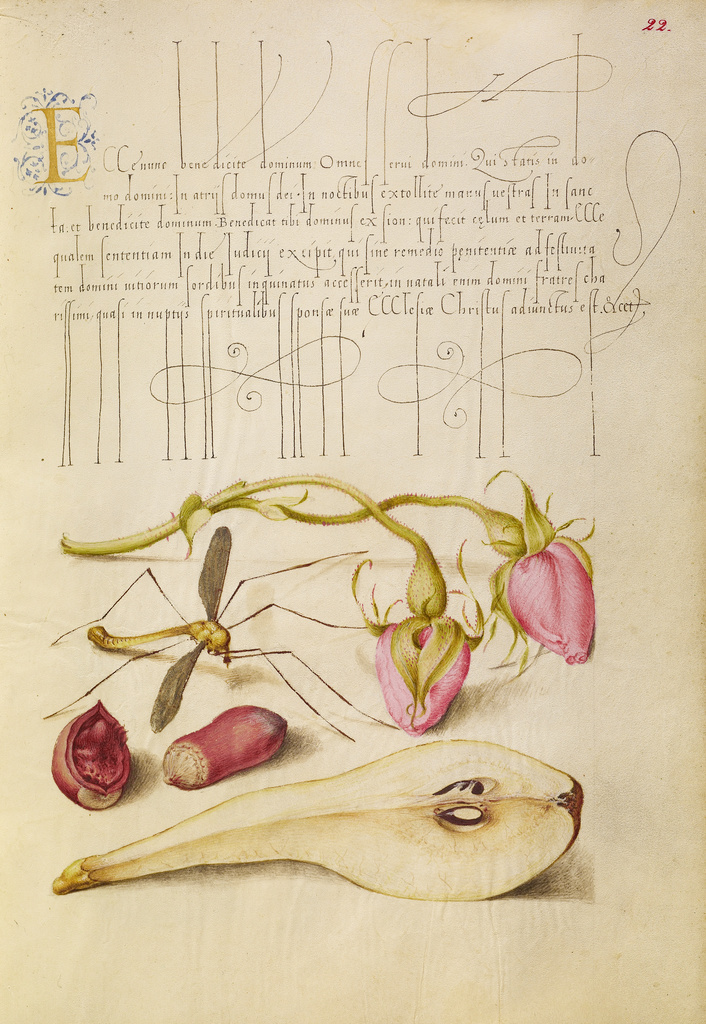 22.
ECCe nunc benedicite dominum: Omnes servi domini. Qui statis in do-
mo domini: In atrijs domus dei. In noctibus extollite manus vestras In sanc
ta, et benedicite dominum. Benedicat tibi dominus ex sion: qui fecit cęlum et terram. CCCe
qualem sententiam In die Iudicij excipit, qui sine remedio penitentiæ ad festiuita
tem domini uitiorum sordibus inquinatus accesserit, in natali enim domini fratres cha
rissimi, quasi in nuptijs spiritualibus sponsæ suæ CCClesiæ Christus adiunctus est. &cet,